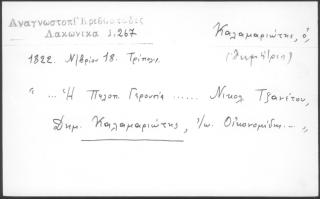 Αναγνωστοπ' Γερβιωτάδες
Λακωνικά σ.267
Καλαμαριώτης, ὁ,
(Δημήτριος)
1822. Ν/βρίου 18. Τρίπολ.
"... Ἡ Πελοπ. Γερουσία ...... Νικολ Τζανέτου,
Δημ. Καλαμαριώτης, Ἰ/ω. Οἰκονομίδης... "